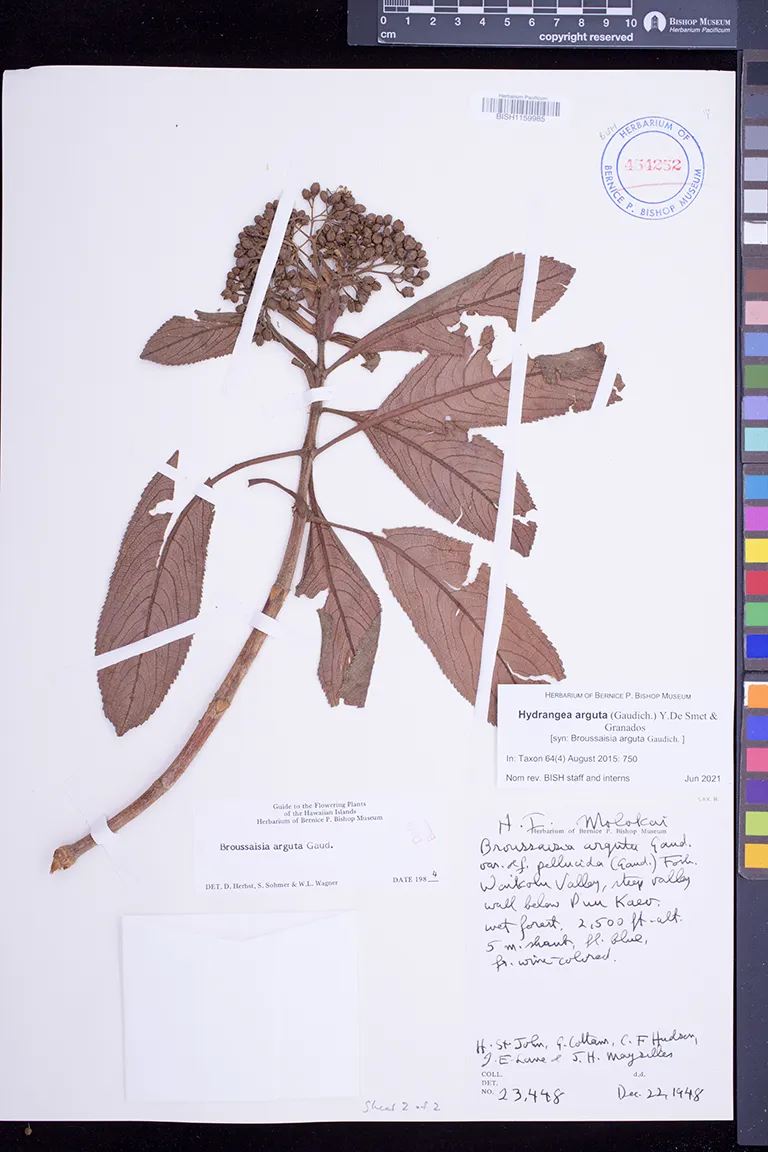 0 1 2 3 4 5 6 7 8 9 10
cm
copyright reserved
BISHOP MUSEUM
Herbarium Pacificum
Herbarium Pacificum
BISH1159985
HERBARIUM OF
BERNICE P. BISHOP MUSEUM
454252
HERBARIUM OF BERNICE P. BISHOP MUSEUM
Hydrangea arguta (Gaudich.) Y.De Smet &
Granados
[syn: Broussaisia arguta Gaudich. ]
In: Taxon 64(4) August 2015: 750
Nom rev. BISH staff and interns Jun 2021
Guide to the Flowering Plants
of the Hawaiian Islands
Herbarium of Bernice P. Bishop Museum
Broussaisia arguta Gaud.
DET. D. Herbst, S. Sohmer & W.L. Wagner DATE 1984
H. I. Molokai
Herbarium of Bernice P. Bishop Museum
Broussaisia arguta Gaud.
var. pellucida (Gaud.) Fosb.
Waikolu Valley, steep valley
wall below Puu Kaeo.
wet forest, 2,500 ft. alt.
5 m. shrub, fl. blue,
fr. wine-colored.
H. St. John, G. Cottam, C. F. Hudson,
J. H. Maysilles
COLL. d.d.
DET.
NO. 23,448 Dec. 22, 1948
Sheet 2 of 2